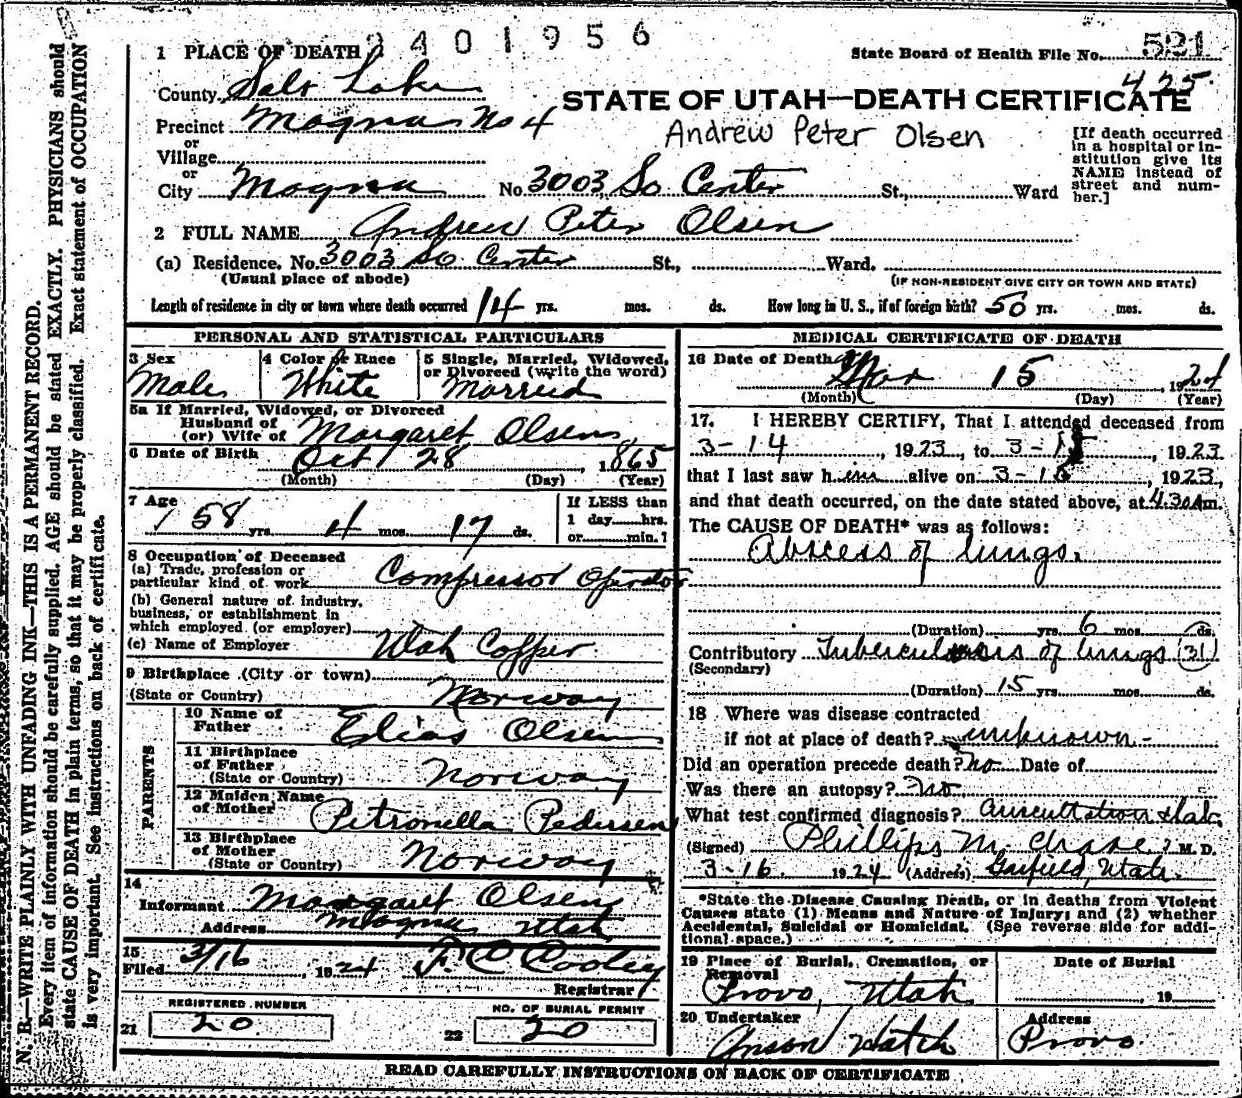 2401956
1 PLACE OF DEATH
State Board of Health File No. 521
425
County Salt Lake
STATE OF UTAH—DEATH CERTIFICATE
Precinct Magna No 4
Andrew Peter Olsen
or
Village
or
City Magna No. 3003 So Center St., Ward
[If death occurred
in a hospital or in-
stitution give its
NAME instead of
street and num-
ber.]
2 FULL NAME Andrew Peter Olsen
(a) Residence. No. 3003 So Center St., Ward.
(Usual place of abode)
(IF NON-RESIDENT GIVE CITY OR TOWN AND STATE)
Length of residence in city or town where death occurred 14 yrs. mos. ds. How long in U. S., if of foreign birth? 50 yrs. mos. ds.
PERSONAL AND STATISTICAL PARTICULARS
3 Sex
Male
4 Color or Race
White
5 Single, Married, Widowed,
or Divorced (write the word)
Married
5a If Married, Widowed, or Divorced
Husband of
(or) Wife of Margaret Olsen
6 Date of Birth Oct 28, 1865
(Month) (Day) (Year)
7 Age
58 yrs. 4 mos. 17 ds.
If LESS than
1 day hrs.
or min.?
8 Occupation of Deceased
(a) Trade, profession or
particular kind of work Compressor Operator
(b) General nature of industry,
business, or establishment in
which employed (or employer)
(c) Name of Employer Utah Copper
9 Birthplace (City or town)
(State or Country) Norway
PARENTS
10 Name of
Father Elias Olsen
11 Birthplace
of Father
(State or Country) Norway
12 Maiden Name
of Mother Petronella Pedersen
13 Birthplace
of Mother
(State or Country) Norway
14
Informant Margaret Olsen
Address Magna Utah
15
Filed 3/16, 1924 F. C. Cooley
Registrar
REGISTERED NUMBER
21 20
NO. OF BURIAL PERMIT
22 20
MEDICAL CERTIFICATE OF DEATH
16 Date of Death Mar 15, 1924
(Month) (Day) (Year)
17. I HEREBY CERTIFY, That I attended deceased from
3-14, 1923, to 3-15, 1923
that I last saw him alive on 3-15, 1923,
and that death occurred, on the date stated above, at 4.30 Am.
The CAUSE OF DEATH* was as follows:
Abscess of lungs.
(Duration) yrs. 6 mos. ds.
Contributory Tuberculosis of lungs (31)
(Secondary)
(Duration) 15 yrs. mos. ds.
18 Where was disease contracted
if not at place of death? unknown -
Did an operation precede death? no Date of
Was there an autopsy? no
What test confirmed diagnosis? Auscultation
(Signed) Phillips M. Chase, M. D.
3-16. 1924 (Address) Garfield, Utah.
*State the Disease Causing Death, or in deaths from Violent
Causes state (1) Means and Nature of Injury; and (2) whether
Accidental, Suicidal or Homicidal. (See reverse side for addi-
tional space.)
19 Place of Burial, Cremation, or
Removal
Provo, Utah
Date of Burial
, 19
20 Undertaker
Anson Hatch
Address
Provo.
READ CAREFULLY INSTRUCTIONS ON BACK OF CERTIFICATE
N. B.—WRITE PLAINLY WITH UNFADING INK—THIS IS A PERMANENT RECORD.
Every item of information should be carefully supplied. AGE should be stated EXACTLY. PHYSICIANS should
state CAUSE OF DEATH in plain terms, so that it may be properly classified. Exact statement of OCCUPATION
is very important. See instructions on back of certificate.